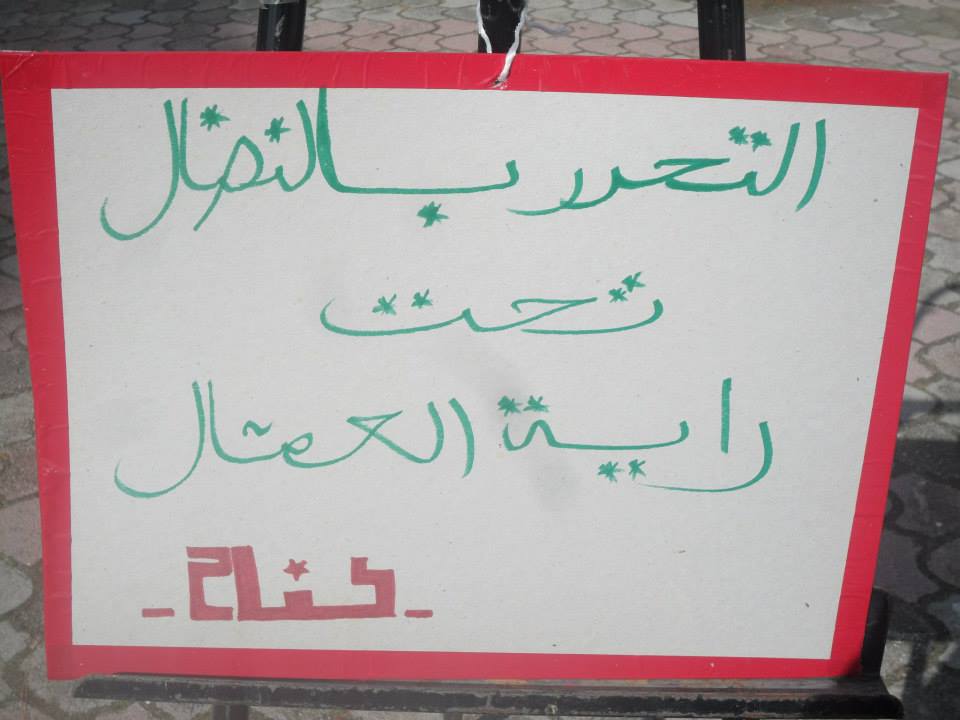 التحرر بالنضال
تحت
راية العمّال
- كفاح -